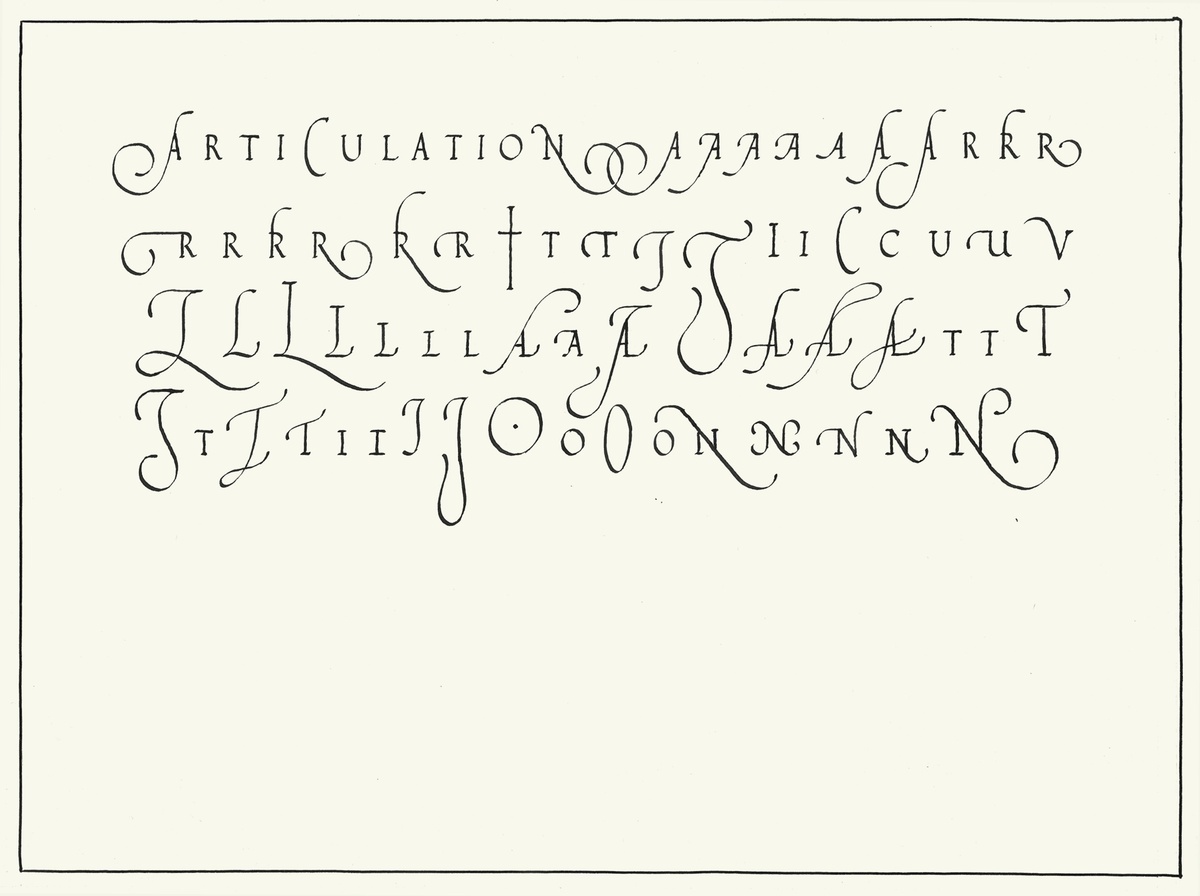 ARTICULATION AAAAAAARRR
RRRRRRTTTTTIICCUUV
LLLLLLLAAATAAATTT
TTTTIIIIOOOONNNNN